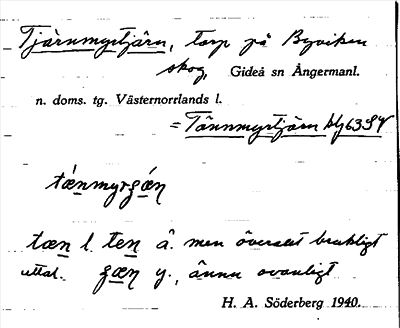 Tjärnmyrtjärn, torp på Byviken
skog, Gideå sn Ångermanl.
n. doms. tg. Västernorrlands l.
= Tännmyrtjärn blg 63 SV
tænmyrʒæn
tæn l. ten ä. men överallt brukligt
uttal. ʒæn y., ännu ovanligt
H. A. Söderberg 1940.